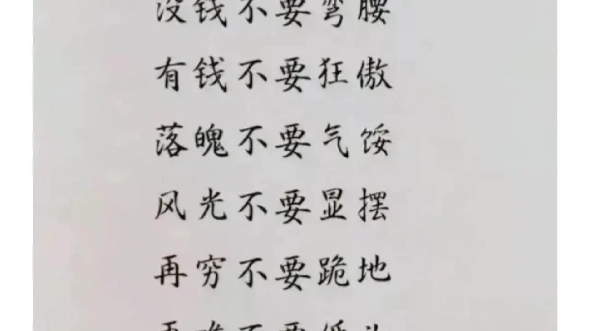 没钱不要弯腰
有钱不要狂傲
落魄不要气馁
风光不要显摆
再穷不要跪地
再难不要低头